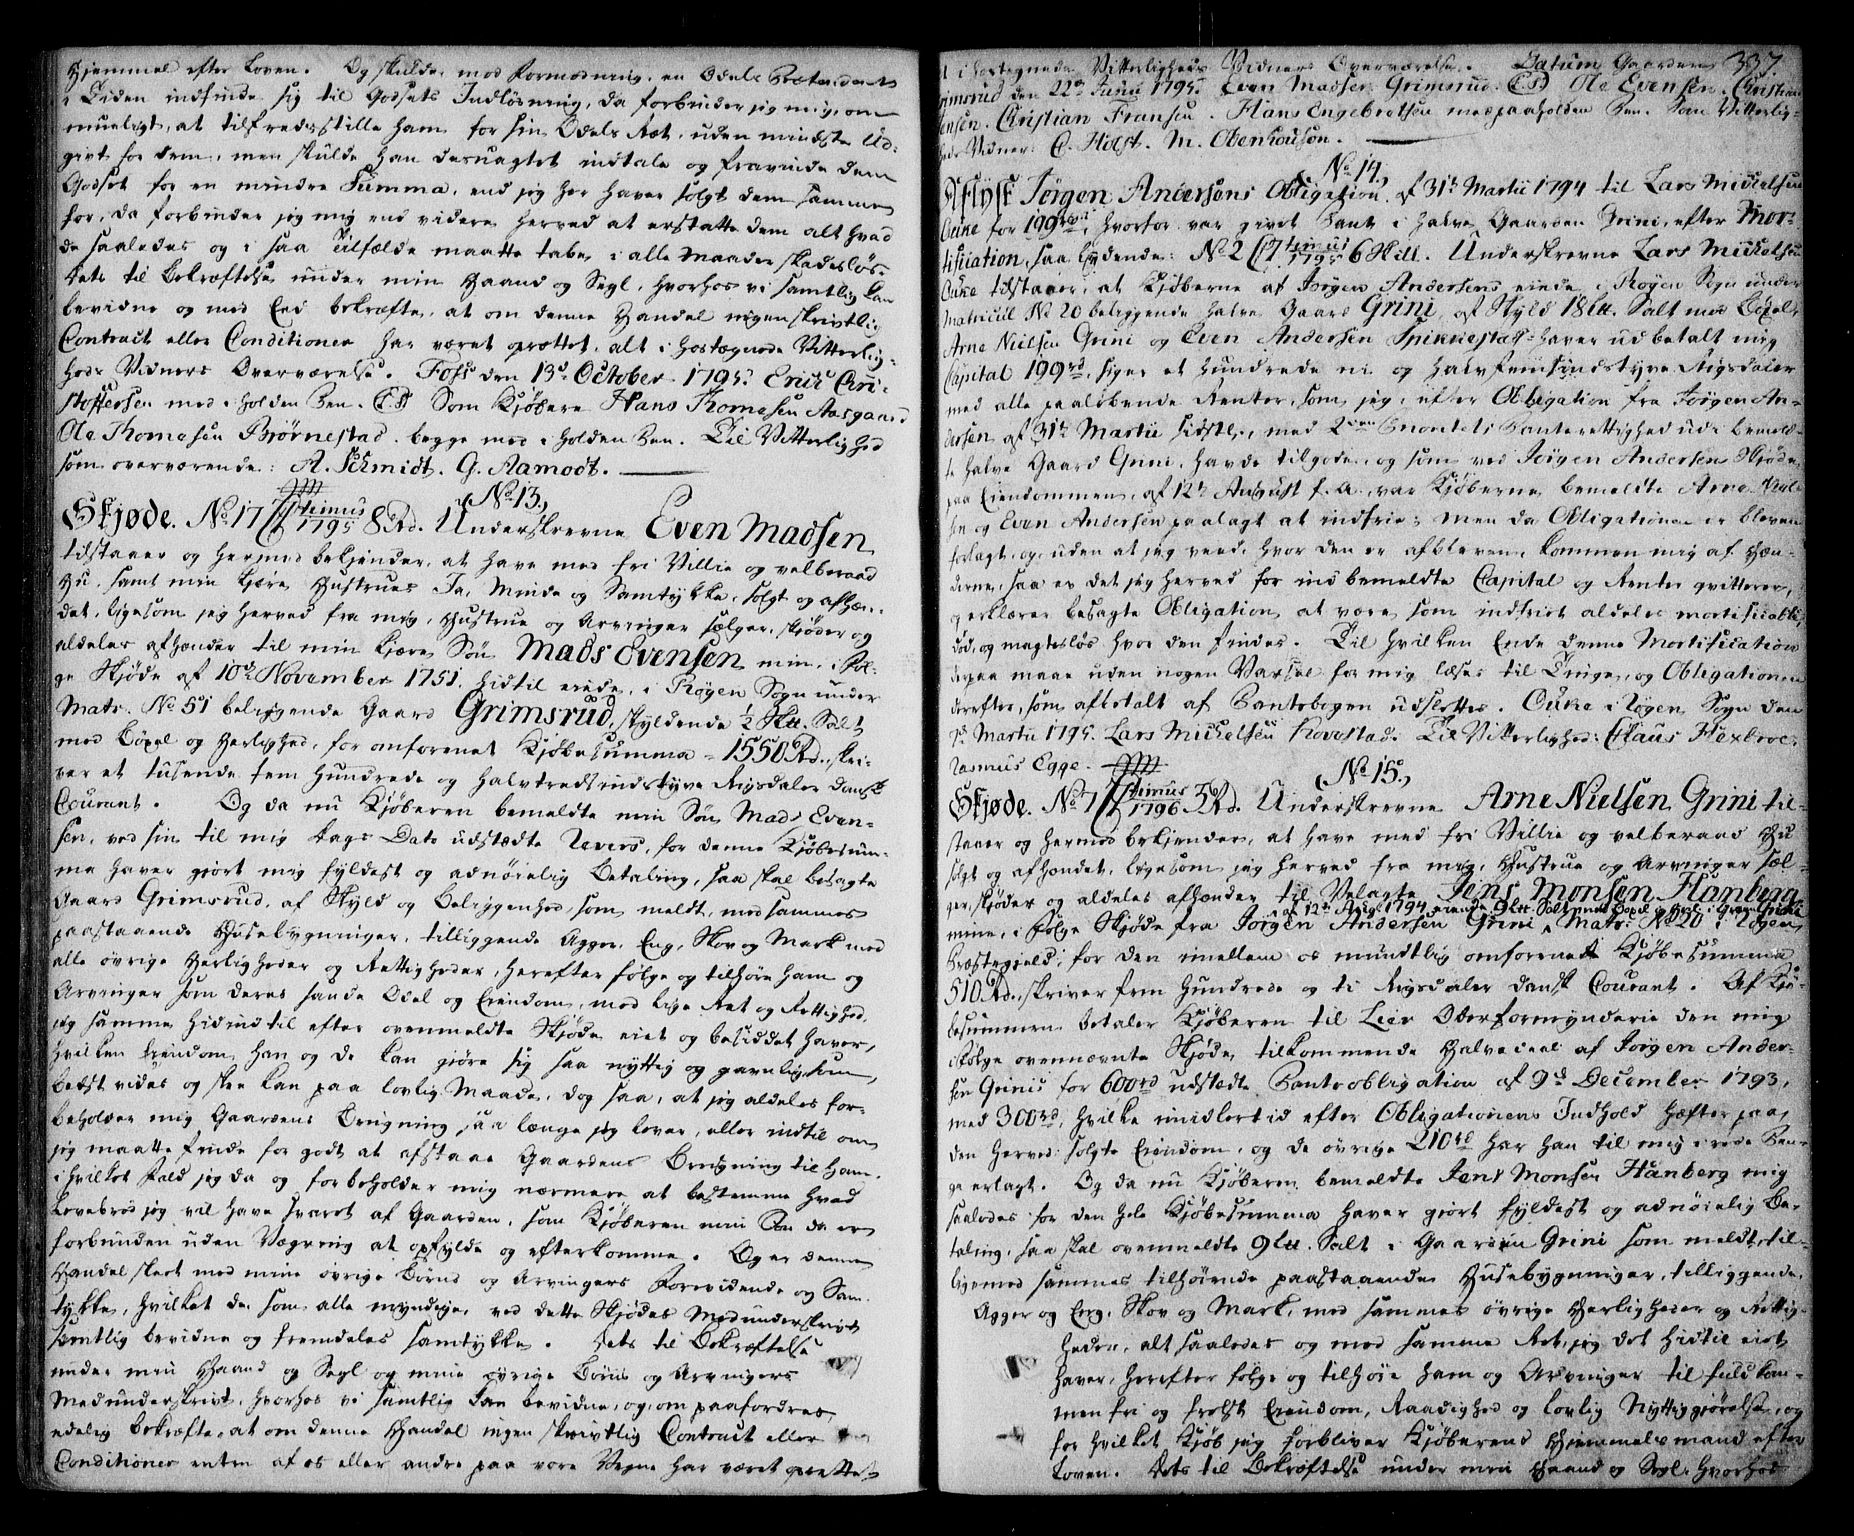 Hjemmel efter Loven. Og skulde, mod Formodning, en Odels Prætendent
i Tiden indfinde sig til Godsets Indløsning, da forbinder jeg mig, om
mueligt, at tilfredsstille ham for sin Odels Ret, uden mindste Ud-
givt for dem, men skulde han desuagtet indtale og fravinde dem
Godset for en mindre Summa, end jeg her haver solgt dem samme
for, da forbinder jeg mig end videre herved at erstatte dem alt hvad
de saaledes og i saa Tilfælde maatte tabe, i alle Maader skadesløs.
Dets til Bekræftelse under min Haand og Segl, hvorhos vi samtlig kan
bevidne og med Eed bekræfte, at om denne Handel ingen skrivtlig
Contract eller Conditioner har været oprettet, alt i hostegnede Vitterlig-
heds Vidners Overværelse. Foss den 13de October 1795. Erich Chri-
stoffersen med i holden Pen. (L.S.) Som Kjøbere Hans Thomesen Aasgaard
Ole Thomesen Bjørnestad, begge med i holden Pen. Til Vitterlighed
som overværende: A. Schmidt. G. Aamodt.
No 13,
Skjøde. No 17 timus 1795 8 Rd. Underskrevne Even Madsen
tilstaaer og hermed bekjender, at have med fri Villie og velberaad
Hu, samt min kjære Hustrues Ja, Minde og Samtykke, solgt og afhæn-
det, ligesom jeg herved fra mig, Hustrue og Arvinger sælger, skjøder og
aldeles afhænder til min kjære Søn Mads Evensen min, i Føl-
ge Skjøde af 10de November 1751, hidtil eiede, i Røyen Sogn under
Matr. No 51 beliggende Gaard Grimsrud, skyldende 1/2 Skll. Salt
med Bøxel og Herlighed, for omforenet Kjøbesumma - 1550 Rd. skri-
ver et tusende fem Hundrede og halvtredsindstyve Rigsdaler Dansk
Courant. Og da nu Kjøberen bemeldte min Søn Mads Even-
sen, ved sin til mig dags Dato udstædte Revers, for denne Kjøbesum-
ma haver gjort mig fyldest og adnøielig Betaling, saa skal besagte
Gaard Grimsrud, af Skyld og Beliggenhed, som meldt, med sammes
paastaaende Husebygninger, tilliggende Agger, Eng, Skov og Mark med
alle øvrige Herligheder og Rettigheder, herefter følge og tilhøre ham og
Arvinger som deres sande Odel og Eiendom, med lige Ret og Rettighed,
jeg samme hidindtil efter ovenmeldte Skjøde eiet og besiddet haver,
hvilken Eiendom han og de kan gjøre sig saa nyttig og gavnlig, som
bedst vides og skee kan paa lovlig Maade, dog saa, at jeg aldeles for-
beholder mig Gaardens Brugning saa længe jeg lever, eller indtil om
jeg maatte finde for godt at afstaae Gaardens Brugning til ham,
i hvilket Fald jeg da og forbeholder mig nærmere at bestemme hvad
Levebrød jeg vil have svaret af Gaarden, som Kjøberen min Søn da er
forbunden uden Vægring at opfylde og efterkomme. Og er denne
Handel skeet med mine øvrige Børns og Arvingers Forevidende og Sam-
tykke, hvilket de som alle myndige, ved dette Skjødes Medunderskrivt
samtlig bevidne og fremdeles samtykke. Dets til Bekræftelse
under min Haand og Segl og mine øvrige Børns og Arvingers
Medunderskrivt, hvorhos vi samtlig kan bevidne, og, om paafordres,
edelig bekræfte, at om denne Handel ingen skrivtlig Contract eller
Conditioner enten af os eller andre paa vore Vegne har været oprettet,
337.
alt i hostegnede Vitterligheds Vidners Overværelse. Datum Gaarden
Grimsrud den 22de Junii 1795. Even Madsen Grimsrud. (L.S.) Ole Evensen. Christian
Jensen. Christian Fransen. Hans Engebretsen med paaholden Pen. Som Vitterlig-
heds Vidner: C. Holst. M. Obenhousen.
No 14,
Aflyst Jørgen Andersens Obligation af 31te Martii 1794 til Lars Mickelsen
Ouke for 199 rd, hvorfor var givet Pant i halve Gaarden Grini, efter Mor-
tification, saa lydende: No 2 timus 1795 6 skill. Underskrevne Lars Mickelsen
Ouke tilstaaer, at Kjøberne af Jørgen Andersens eiede i Røyen Sogn under
Matricul No 20 beliggende halve Gaard Grini, af Skyld 18 Lll. Salt med Bøxel,
Arne Nielsen Grini og Even Andersen Spikkestad haver udbetalt mig
Capital 199 rd, siger et hundrede ni og halvfemsindstyve Rigsdaler
med alle paaløbende Renter, som jeg, efter Obligation fra Jørgen An-
dersen af 31te Martii sidstl., med 2den Prioritets Panterettighed udi bemeld-
te halve Gaard Grini, havde tilgode, og som ved Jørgen Andersens Skjøde
paa Eiendommen, af 12te August f. A., var Kjøberne bemeldte Arne Niel-
sen og Even Andersen paalagt at indfrie; men da Obligationen er bleven
forlagt, og uden at jeg veed, hvor den er afbleven, kommen mig af Hæn-
derne, saa er det jeg herved for indbemeldte Capital og Renter qvitterer,
og erklærer besagte Obligation at være som indfriet aldeles mortificeret,
død, og magtesløs hvor den findes. Til hvilken Ende denne Mortification
derpaa maae uden nogen Varsel for mig læses til Tinge, og Obligationen
derefter, som afbetalt af Pantebogen udslettes. Ouke i Røyen Sogn den
7de Martii 1795. Lars Mickelsen Hovestad. Til Vitterlighed: Claus Hexbroe.
Rasmus Egge.
No 15,
Skjøde. No 7 timus 1796 3 Rd. Underskrevne Arne Nielsen Grini til-
staaer og hermed bekjender, at have med fri Villie og velberaad Hu
solgt og afhændet, ligesom jeg herved fra mig, Hustrue og Arvinger sæl-
ger, skjøder og aldeles afhænder til Velagte Jens Monsen Hanberg
af 12te Aug. 1794 eiende 9 Lll. Salt med Bøxel og Herl. i Gaarden Grini
mine, i Følge Skjøde fra Jørgen Andersen Grini Matr. No 20 i Røyens
Præstegjeld, for den imellem os mundtlig omforenet Kjøbesumma
510 Rd., skriver fem Hundrede og ti Rigsdaler dansk Courant. Af Kjø-
besummen betaler Kjøberen til Lier Oberformynderie den mig
ifølge ovennævnte Skjøde tilkommende Halvedeel af Jørgen Ander-
sen Grinis for 600 rd udstedte Pantobligation af 9de December 1793,
med 300 rd, hvilke imidlertid efter Obligationens Indhold hæfter paa
den herved solgte Eiendom, og de øvrige 210 rd har han til mig i rede Pen-
ge erlagt. Og da nu Kjøberen bemeldte Jens Monsen Hanberg mig
saaledes for den hele Kjøbesumma haver gjort fyldest og adnøielig Be-
taling, saa skal ovenmeldte 9 Lll. Salt i Gaarden Grini som meldt, til-
ligemed sammes tilhørende paastaaende Husebygninger, tilliggende
Agger og Eng, Skov og Mark, med sammes øvrige Herligheder og Rettig-
heder, alt saaledes og med samme Ret, jeg det hidtil eiet
haver, herefter følge og tilhøre ham og Arvinger til fuldkom-
men fri og frelst Eiendom, Raadighed og lovlig Nyttiggjørelse, og
for hvilket Kjøb jeg forbliver Kjøberens Hjemmelsmand efter
Loven. Dets til Bekræftelse under min Haand og Segl, hvorhos